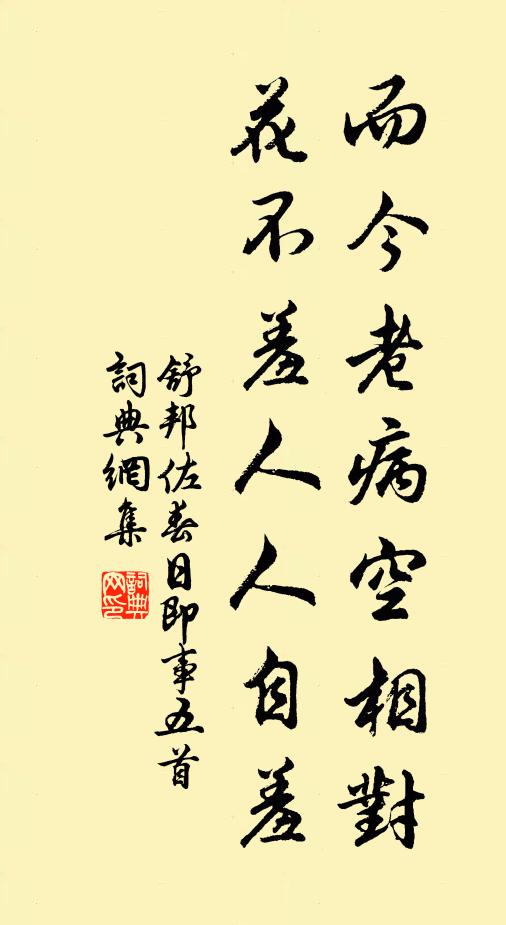 而今老病空相對
花不羞人人自羞
舒邦佐春日即事五首
詞典網集
詞典网印